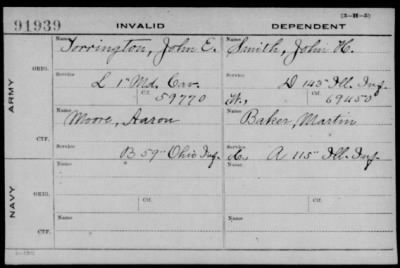 91939 INVALID DEPENDENT (3-H-3)
Name Torrington, John E. Name Smith, John H.
ORIG.
Service L 1" Md. Cav. Service D 145 Ill. Inf.
Ctf. 59770 W., Ctf. 69450
ARMY
Name Moore, Aaron Name Baker, Martin
CTF.
Service B 59" Ohio Inf. Service A 115" Ill. Inf.
Name Ctf. Name Ctf.
ORIG.
Service Service
NAVY
Name Name
CTF.
Service Service